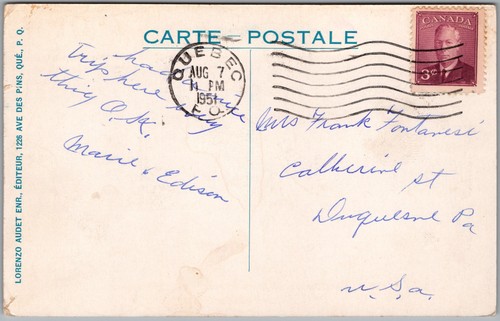 CARTE POSTALE
LORENZO AUDET ENR., ÉDITEUR, 1226 AVE DES PINS, QUÉ., P. Q.
had a nice
trip here every
thing O.K.
Marie & Edison
QUEBEC
AUG 7
PM
1951
P.Q.
CANADA
3¢
Mrs Frank Fontanesi
Catherine st
Duquesne Pa
U.S.a.